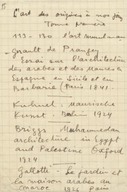 L'art des origines à nos jours
Tome premier
Girault de Prangey
Essai sur l'architecture
des arabes et des mores en
Espagne en Sicile et en
Barbarie (Paris 1841)
Kühnel, maurische
Kunst. 1924
Briggs Muhammadan
architecture in Egypt
and Palestine Oxford
1924
Gallotti. Le jardin et
la maison arabes au
Maroc 1926 Paris